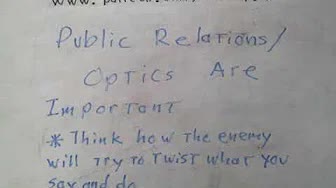 Public Relations/
Optics Are
Important
* Think how the enemy
will try to twist what you
say and do